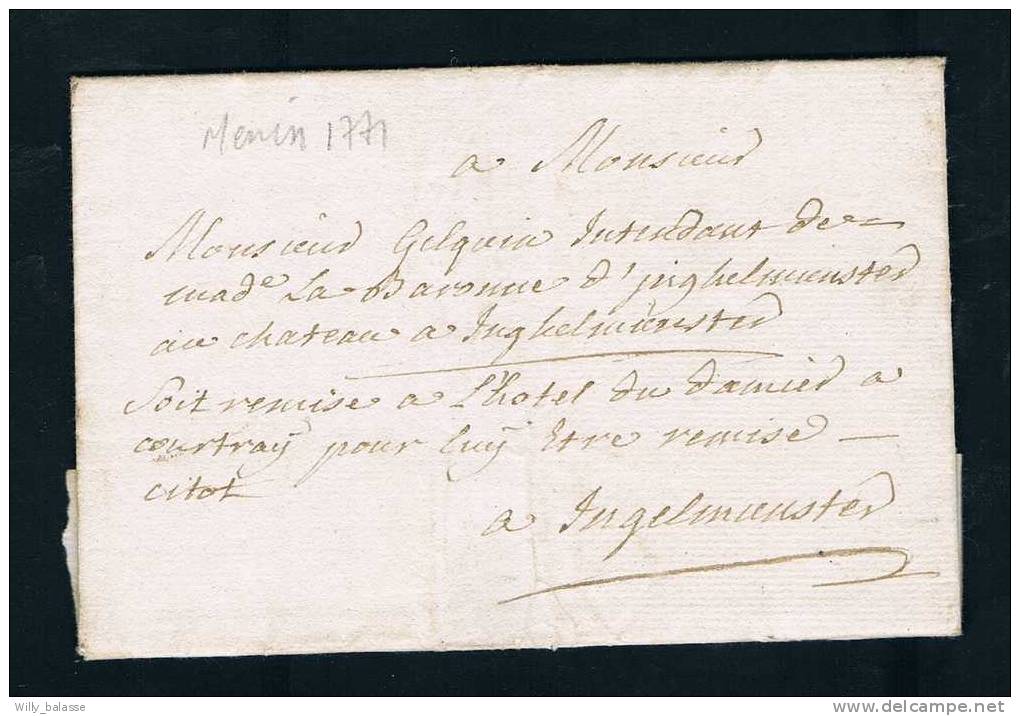 Menin 1771
a Monsieur
Monsieur Gilquin Intendant de
made La Baronne d'jnghelmunster
au chateau a Inghelmunster
Soit remise a L'hotel du damier a
courtray pour luy Etre remise
citot
a Ingelmunster
Willy_balasse